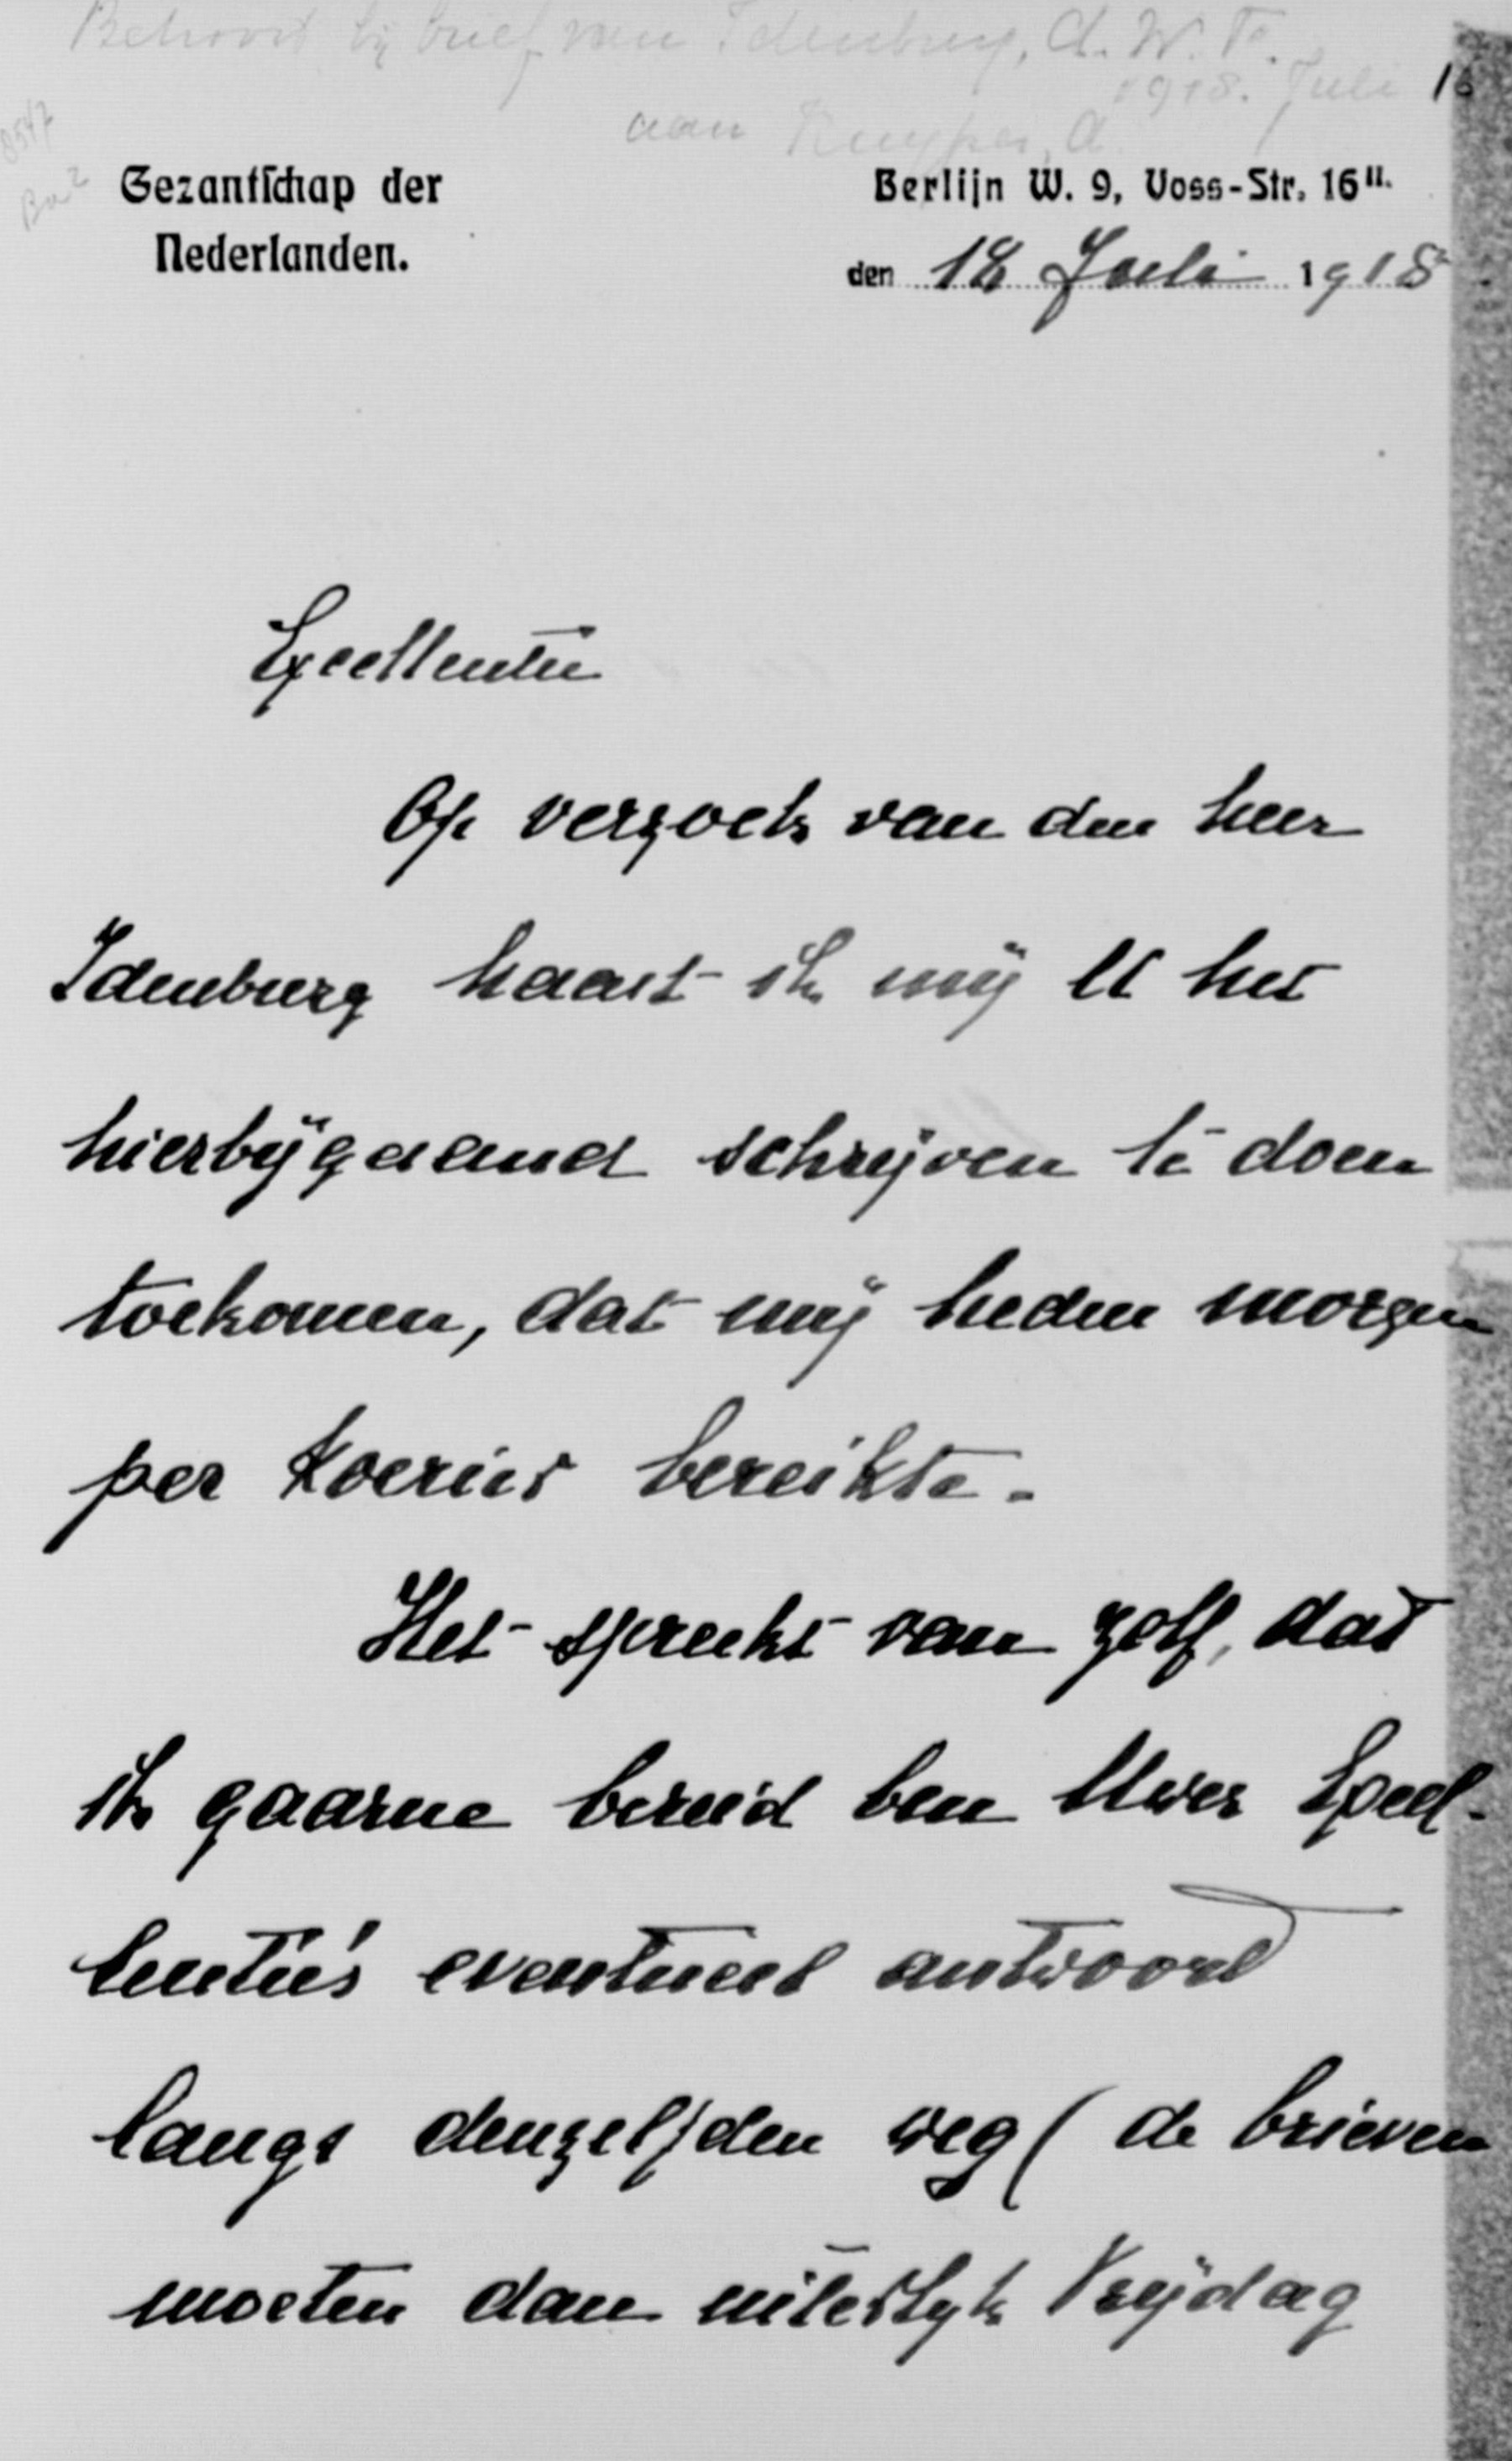 Behoort bij brief van Idenburg, A.W.F.
1918. Juli 16
aan Kuyper, A.
8547
Gezantschap der
Nederlanden.
Berlijn W. 9, Voss-Str. 16 II.
den 18 Juli 1918
Excellentie
Op verzoek van den heer
Idenburg haast ik mij U het
hierbijgaand schrijven te doen
toekomen, dat mij heden morgen
per koerier bereikte.
Het spreekt van zelf, dat
ik gaarne bereid ben Uwer Excel-
lentie's eventueel antwoord
langs denzelfden weg (de brieven
moeten dan uiterlijk Vrijdag